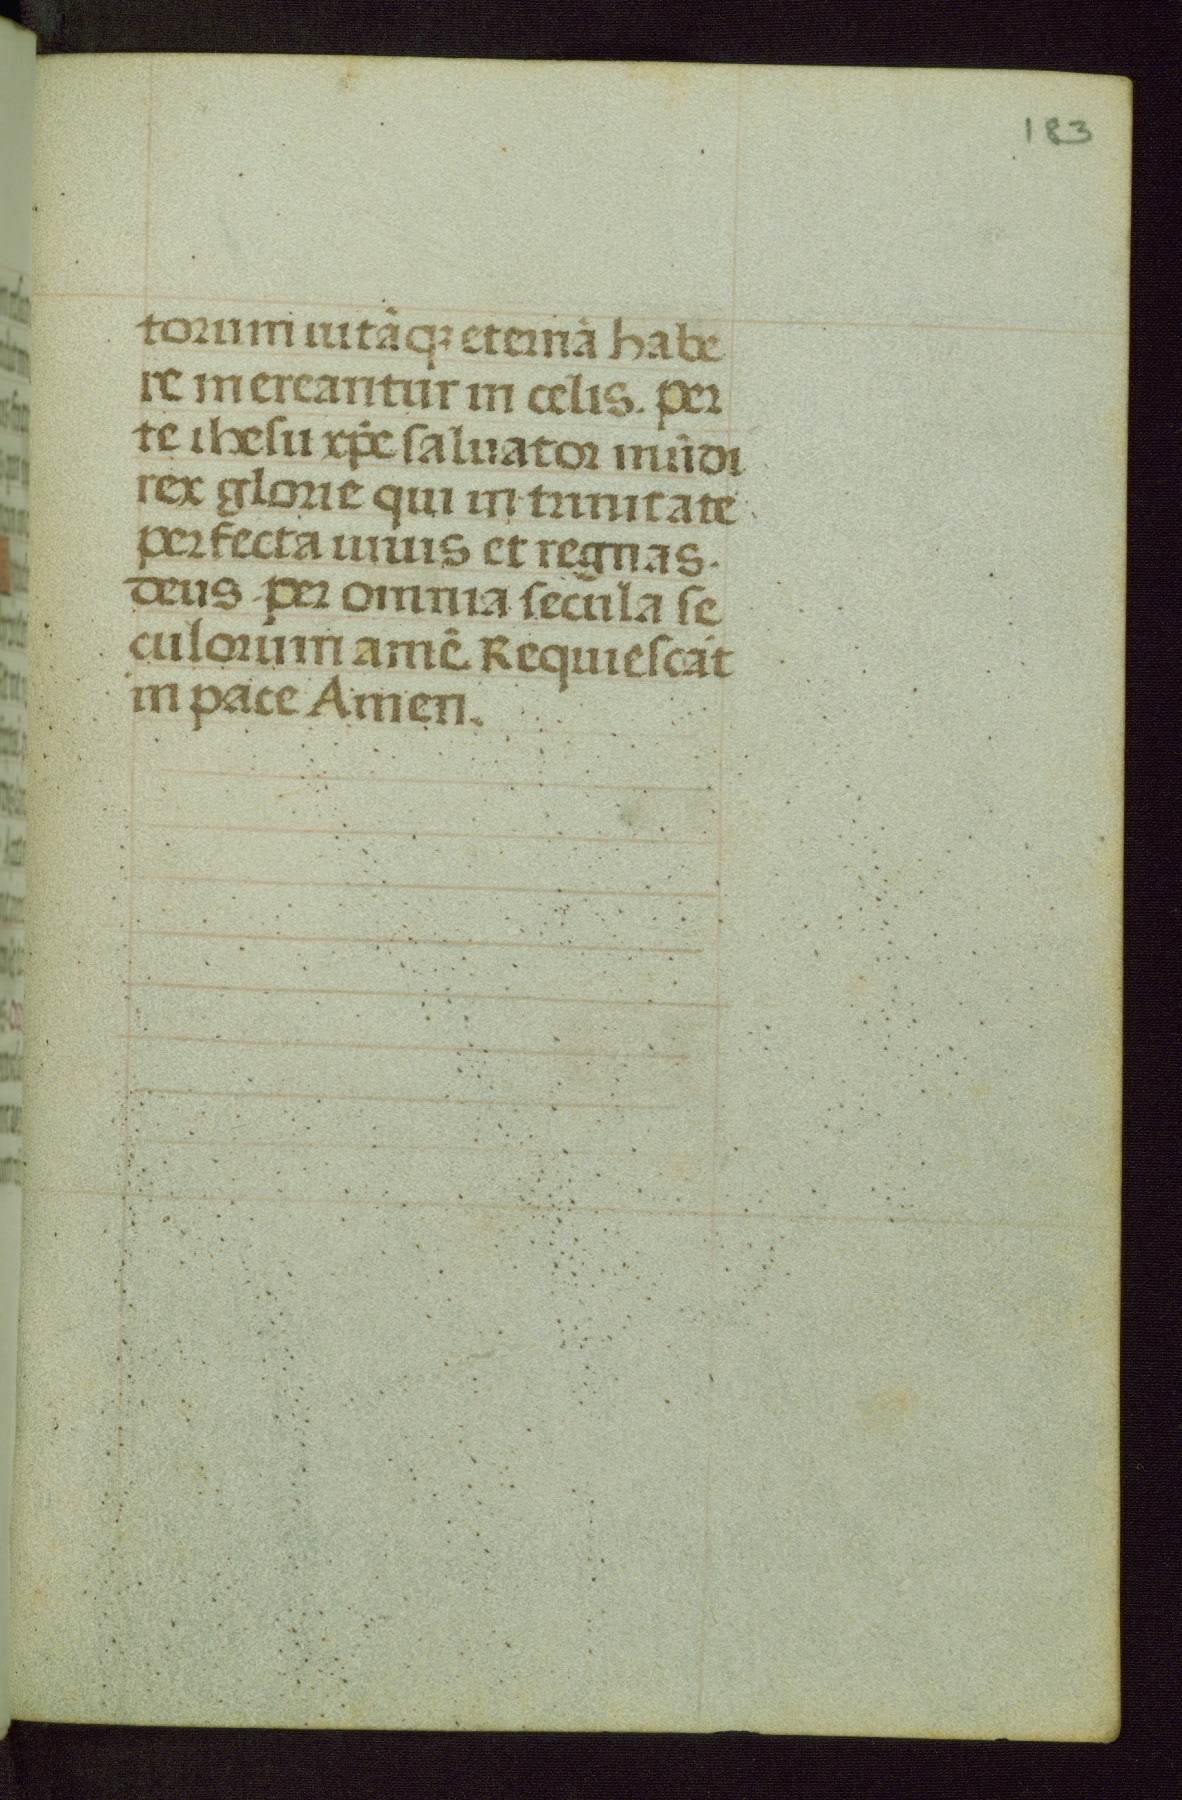 183
torum uitā qʒ eternā habe
re mereantur in celis. per
te ihesu xp̄e saluator mūdi
rex glorie qui in trinitate
perfecta uiuis et regnas.
deus per omnia secula se
culorum amē. Requiescāt
in pace Amen.